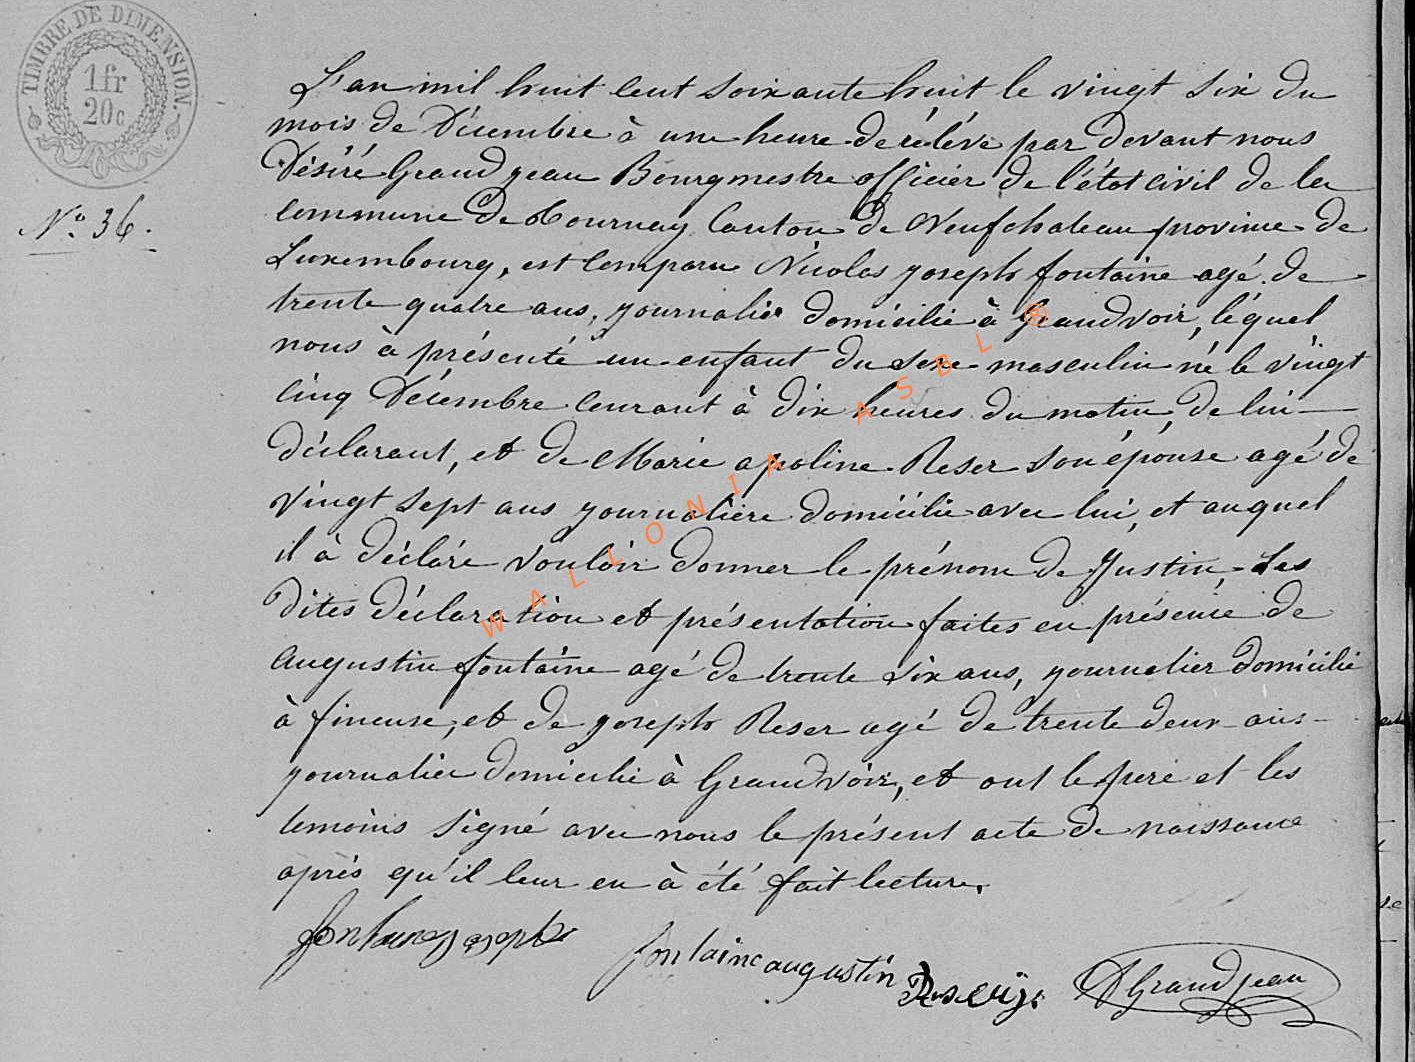 TIMBRE DE DIMENSION
1fr
20c
N° 36.
L'an mil huit cent soixante huit le vingt six du
mois de Décembre à une heure de rélévé par devant nous
Désiré Grandjean Bourgmestre officier de l'état civil de la
commune de Tournay Canton de Neufchateau province de
Luxembourg, est comparu Nicolas joseph fontaine agé de
trente quatre ans, journalier domicilié à Grandvoir, léquel
nous à présenté un enfant du sexe masculin né le vingt
cinq Décembre courant à dix heures du matin, de lui
déclarant, et de Marie apoline Reser son épouse agé de
vingt sept ans journalière domicilié avec lui, et auquel
il à déclaré vouloir donner le prénom de Justin, Les
dites déclaration et présentation faites en présence de
augustin fontaine agé de trente six ans, journalier domicilié
à fineuse, et de joseph Reser agé de trente deux ans
journalier domicilié à Grandvoir, et ont le père et les
temoins signé avec nous le présent acte de naissance
après qu'il leur en à été fait lecture.
fontaine joseph
fontaine augustin
DGrandjean
WALLONIA ASBL